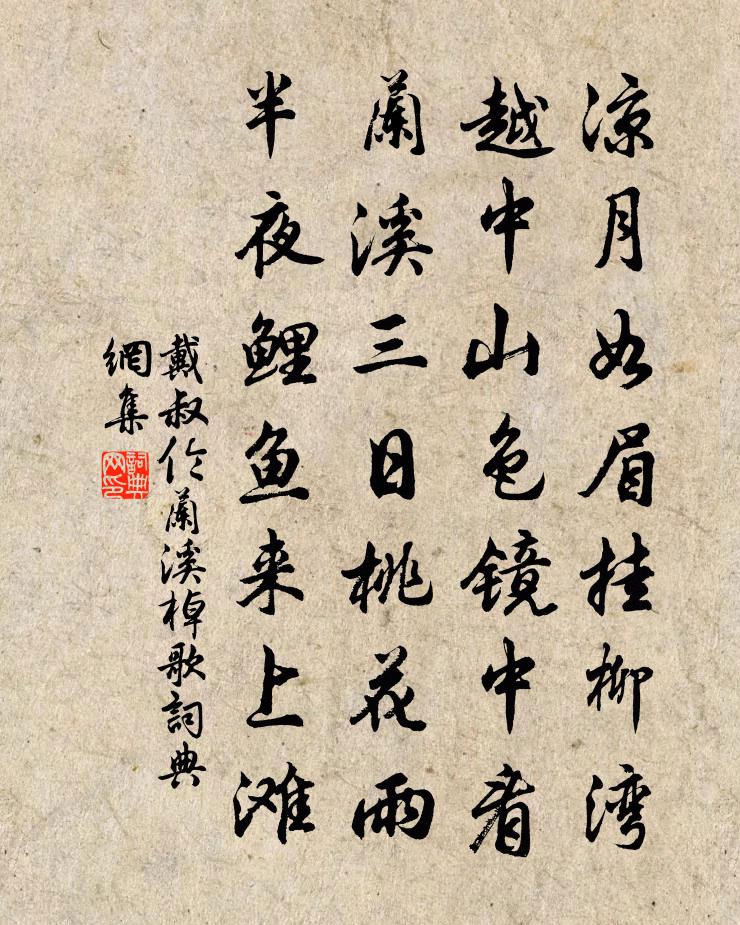 凉月如眉挂柳湾
越中山色镜中看
蘭溪三日桃花雨
半夜鲤鱼来上滩
戴叔伦蘭溪棹歌詞典
網集
詞典
网印